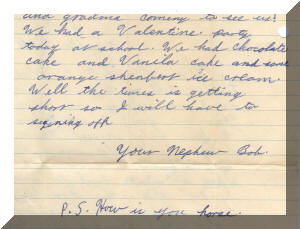 and gradma coming to see us!
We had a Valentine party
today at school. We had chocolate
cake and Vanila cake and some
orange shenbert ice cream.
Well the times is getting
short so I will have to
signing off
Your Nephew Bob.
P.S. How is you horse.